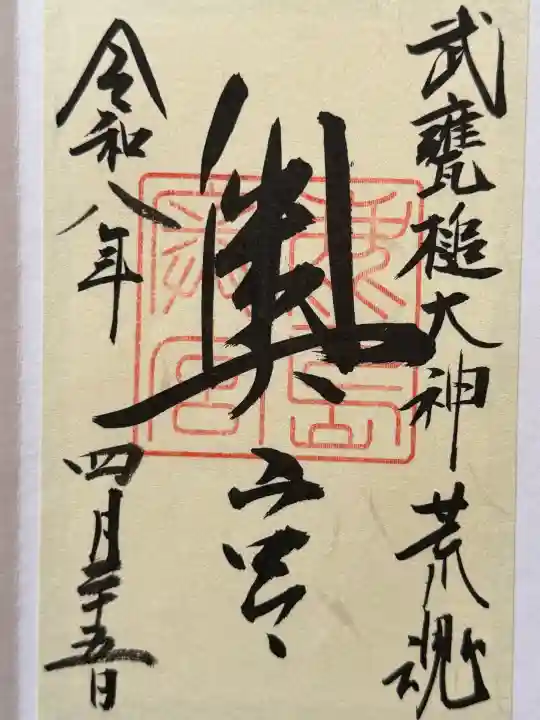 武甕槌大神荒魂
奥宮
令和八年四月二十五日